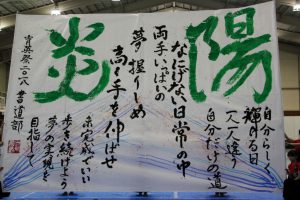 陽炎
自分らしく
輝ける日
一人一人違う
自分だけの道
なにげない日常の中
両手いっぱいの
夢握りしめ
高く手を伸ばせ
未完成でいい
歩き続けよう
夢の実現を
目指して
二〇一八 書道部